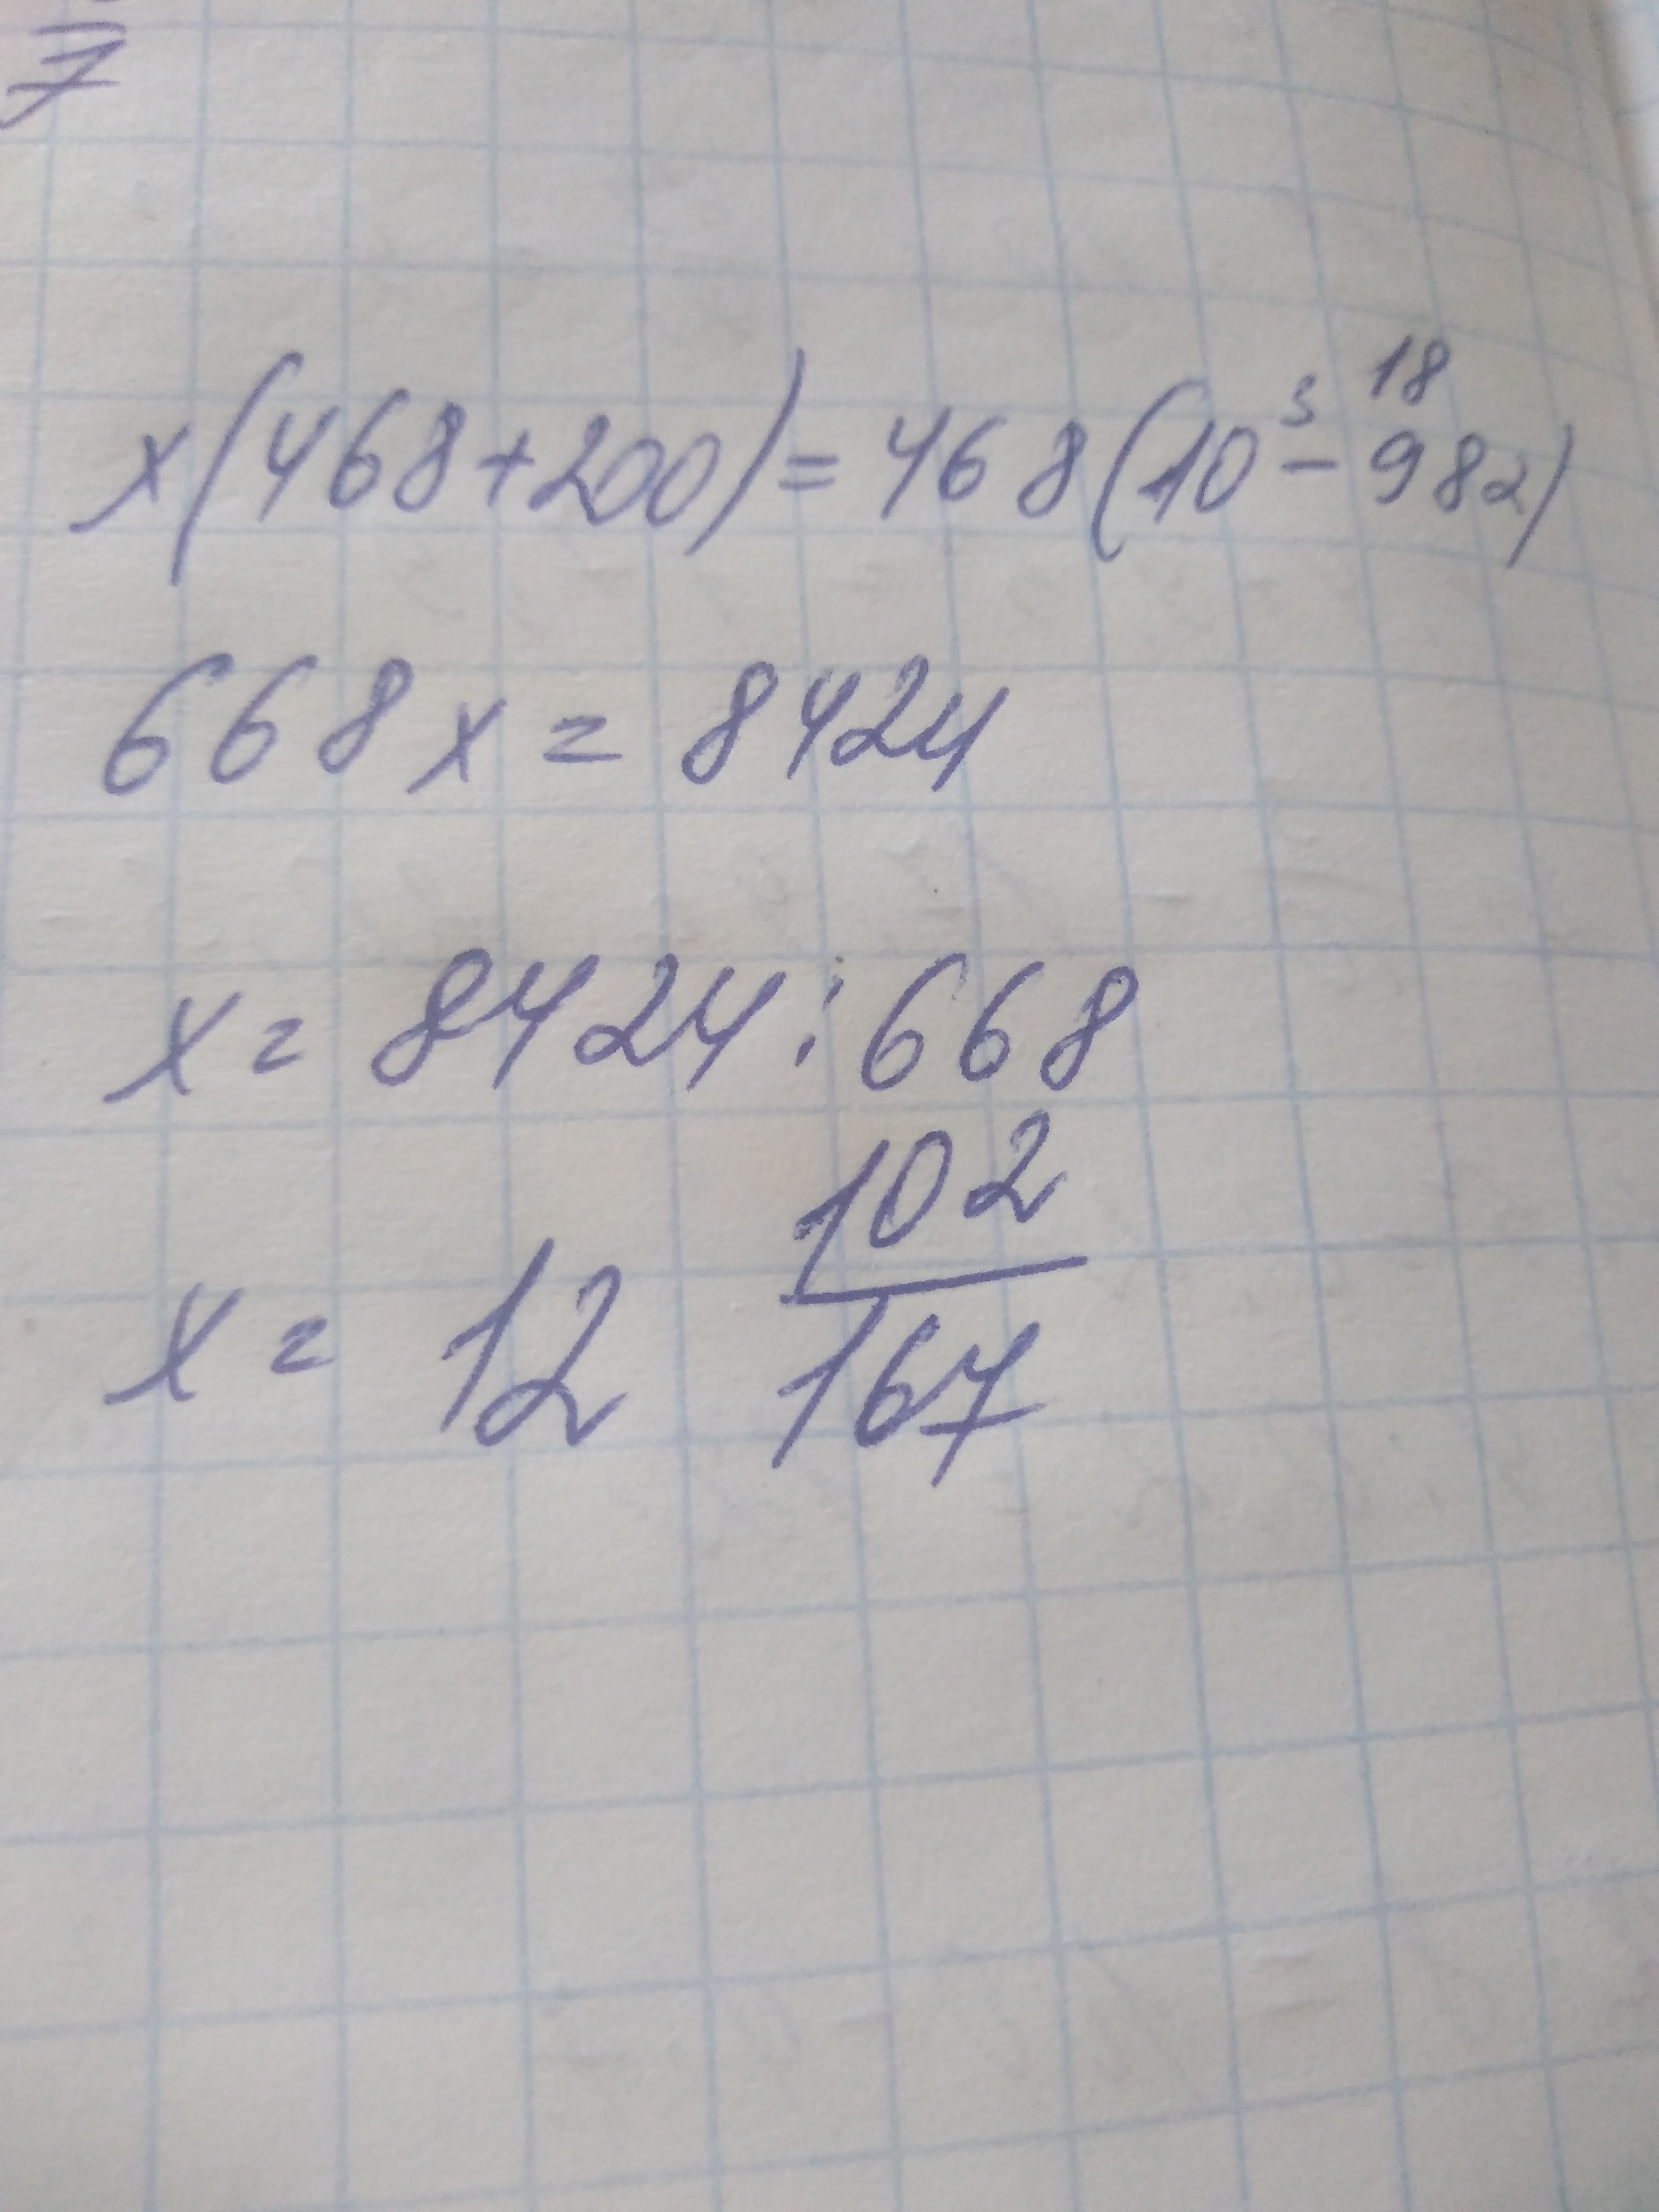 7
18
x(468+200)=468(10³-982)
668x=8424
x=8424:668
x=12 102/167